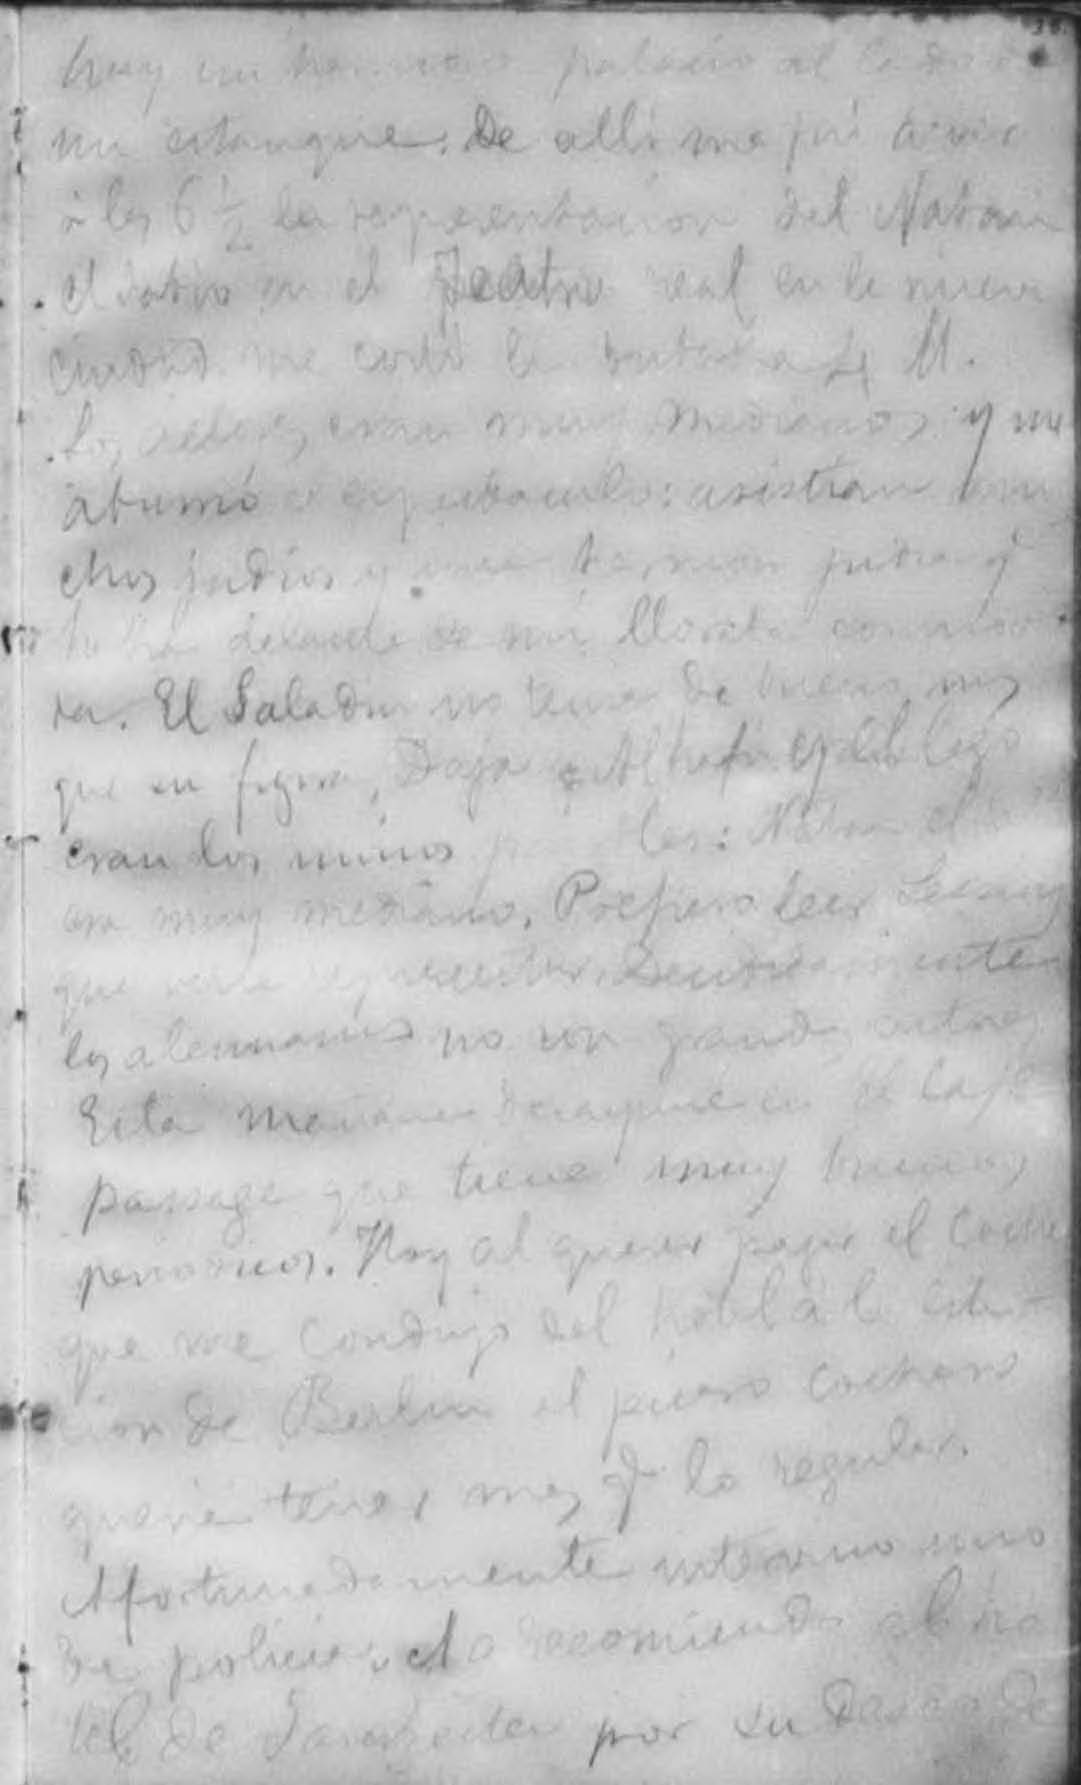 hay un hermoso palacio al lado de
un estanque. De alli me fuí á oir
á las 6 1/2 la representacion del Natan
el sabio en el Teatro real en la nueva
ciudad. me costó la butaca 4 M.
Los actores eran muy medianos y me
abumó el espectaculo: asistian mu
chos judios y una judia q̃
habia delante de mi, lloraba conmovi
da. El Saladin no tenia de bueno mas
que su figura, Daja y Alhafi y el lego
eran los unicos : Natan el
era muy mediano. Prefiero leer Lessing
que verle representar.
los alemanes no son grandes actores
Esta mañana desayuné en el Café
passage que tiene muy buenos
periodicos. Hoy al querer pagar el coche
que me condujo del hotel a la esta
cion de Berlin el pícaro cochero
queria tener mas q̃ lo regular.
Afortunadamente intervino uno
de policia. recomienda el ho
tel de por su